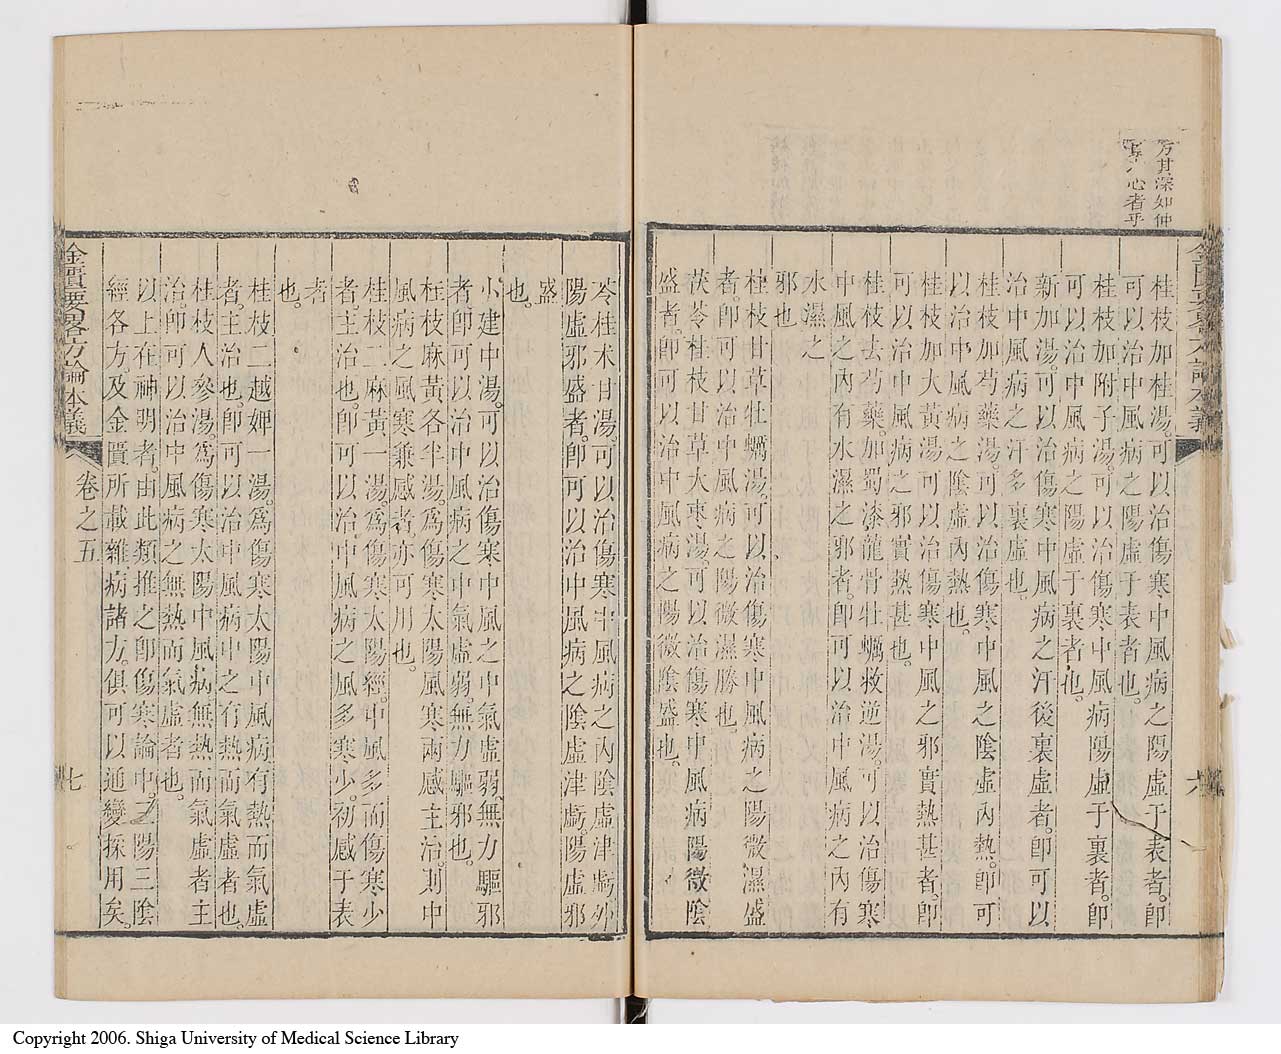 方其深知仲
者乎
桂枝加桂湯可以治傷寒中風病之陽虛于表者卽
可以治中風病之陽虛于表者也
桂枝加附子湯可以治傷寒中風病陽虛于裏者卽
可以治中風病之陽虛于裏者也
新加湯可以治傷寒中風病之汗後裏虛者卽可以
治中風病之汗多裏虛也
桂枝加芍藥湯可以治傷寒中風之陰虛內熱卽可
以治中風病之陰虛內熱也
桂枝加大黃湯可以治傷寒中風之邪實熱甚者卽
可以治中風病之邪實熱甚也
桂枝去芍藥加蜀漆龍骨牡蠣救逆湯可以治傷寒
中風之內有水濕之邪者卽可以治中風病之內有
水濕之
邪也
桂枝甘草牡蠣湯可以治傷寒中風病之陽微濕盛
者卽可以治中風病之陽微濕勝也
茯苓桂枝甘草大棗湯可以治傷寒中風病陽微陰
盛者卽可以治中風病之陽微陰盛也
苓桂术甘湯可以治傷寒中風病之內陰虛津虧外
陽虛邪盛者卽可以治中風病之陰虛津虧陽虛邪
盛
也
小建中湯可以治傷寒中風之中氣虛弱無力驅邪
者卽可以治中風病之中氣虛弱無力驅邪也
桂枝麻黃各半湯爲傷寒太陽風寒兩感主治則中
風病之風寒兼感者亦可用也
桂枝二麻黃一湯爲傷寒太陽經中風多而傷寒少
者主治也卽可以治中風病之風多寒少初感于表
者
也
桂枝二越婢一湯爲傷寒太陽中風病有熱而氣虛
者主治也卽可以治中風病中之有熱而氣虛者也
桂枝人參湯爲傷寒太陽中風病無熱而氣虛者主
治卽可以治中風病之無熱而氣虛者也
以上在神明者由此類推之卽傷寒論中三陽三陰
經各方及金匱所載雜病諸方俱可以通變採用矣
金匱要畧方論本義
卷之五
七